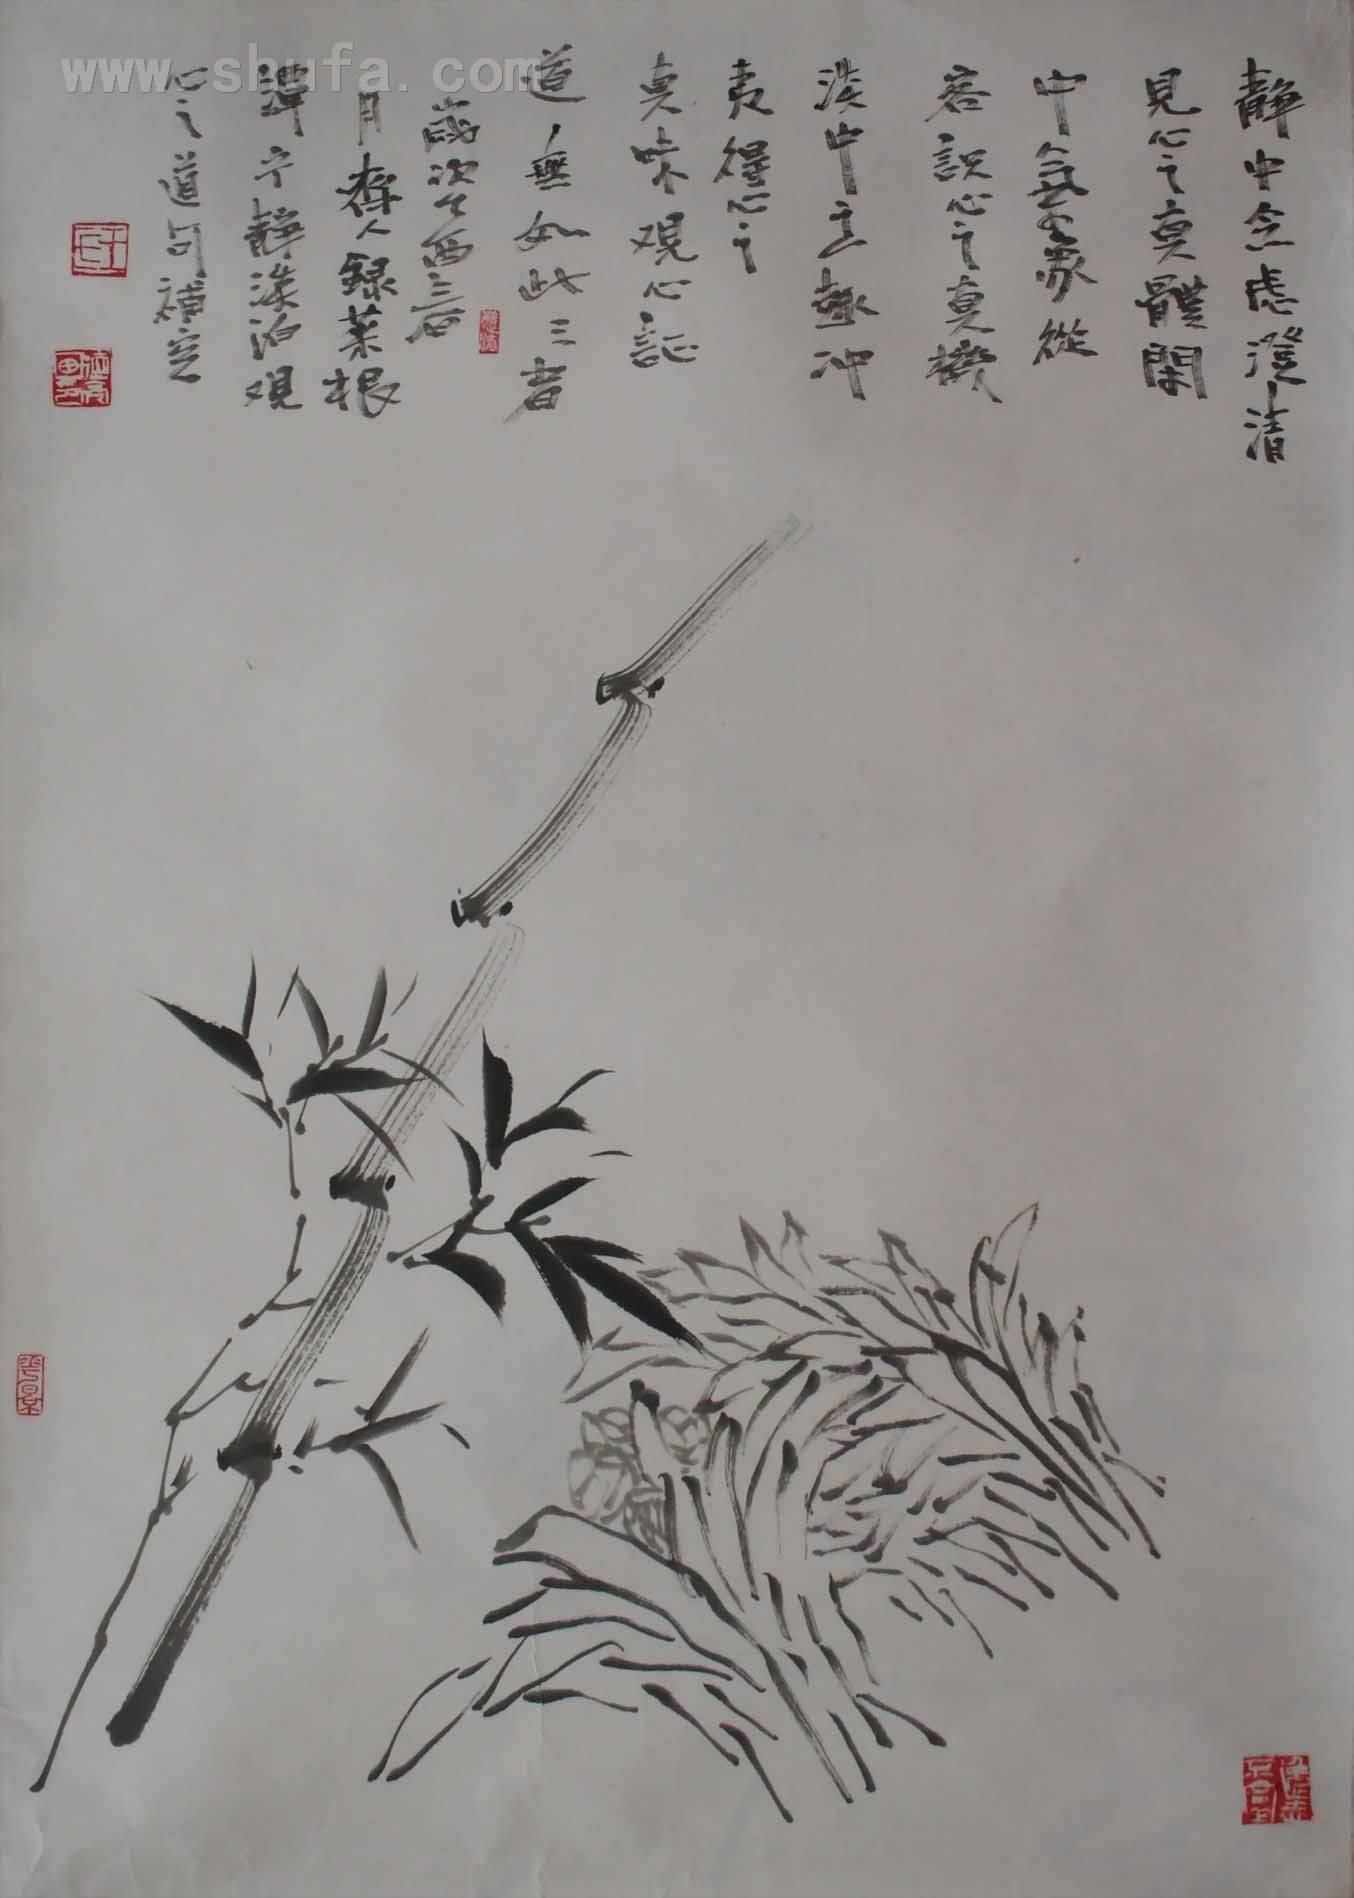 www.shufa.com
靜中念慮澄清
見心之真體閑
中氣象從
容識心之真機
淡中意趣冲
夷得心之
真味观心証
道無如此三者
歲次乙酉三春
月齊人録菜根
譚宁靜淡泊观
心之道句補空